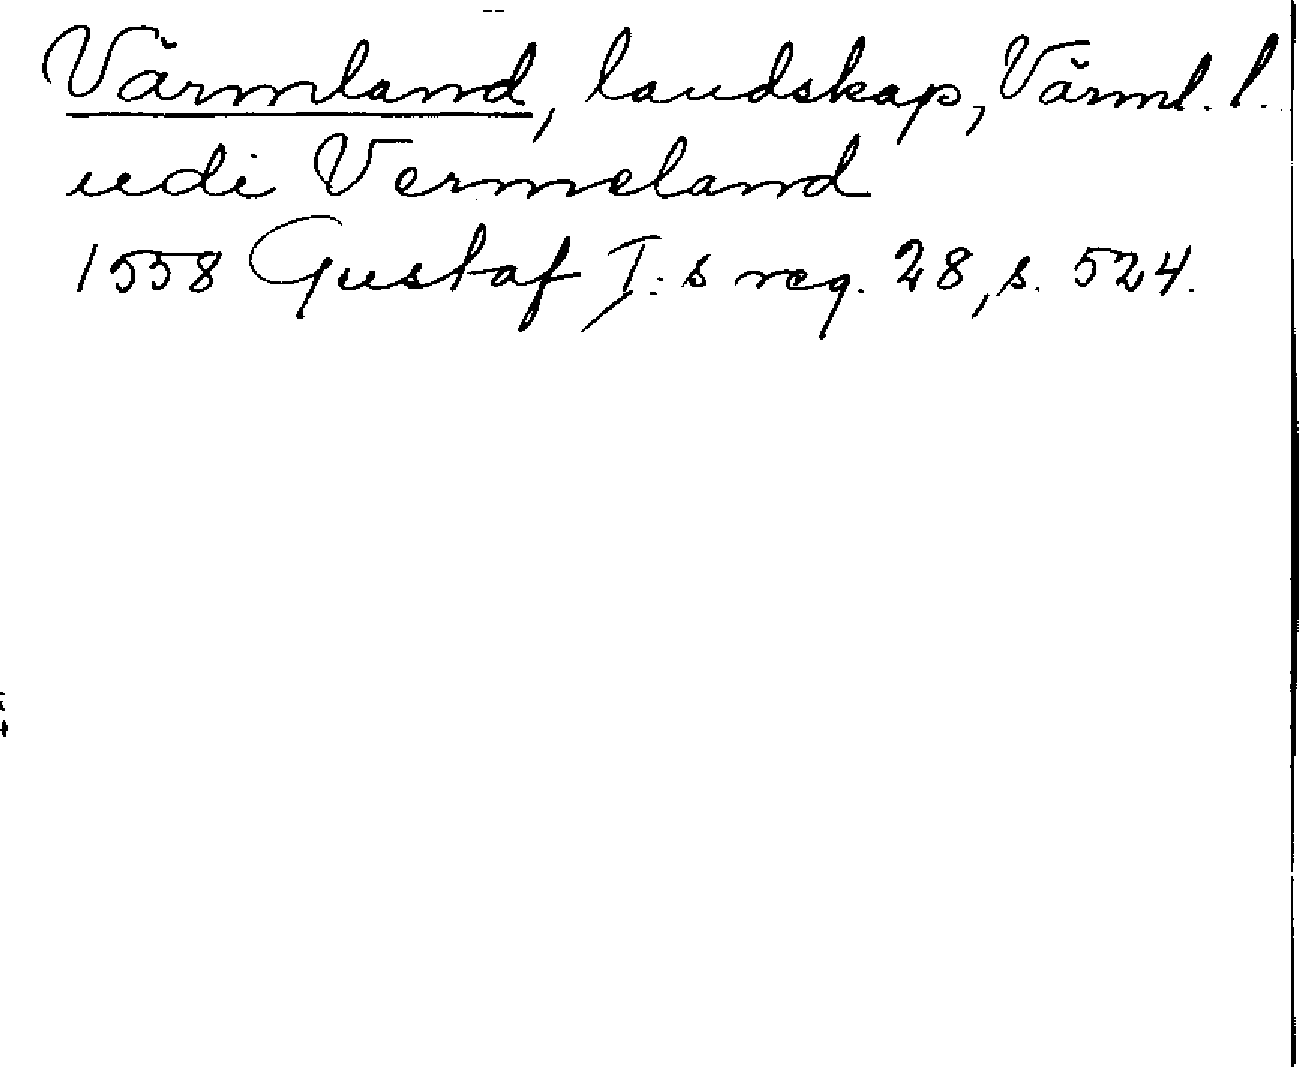 Värmland, landskap, Värml. l.
udi Vermeland
1558 Gustaf I:s reg. 28, s. 524.